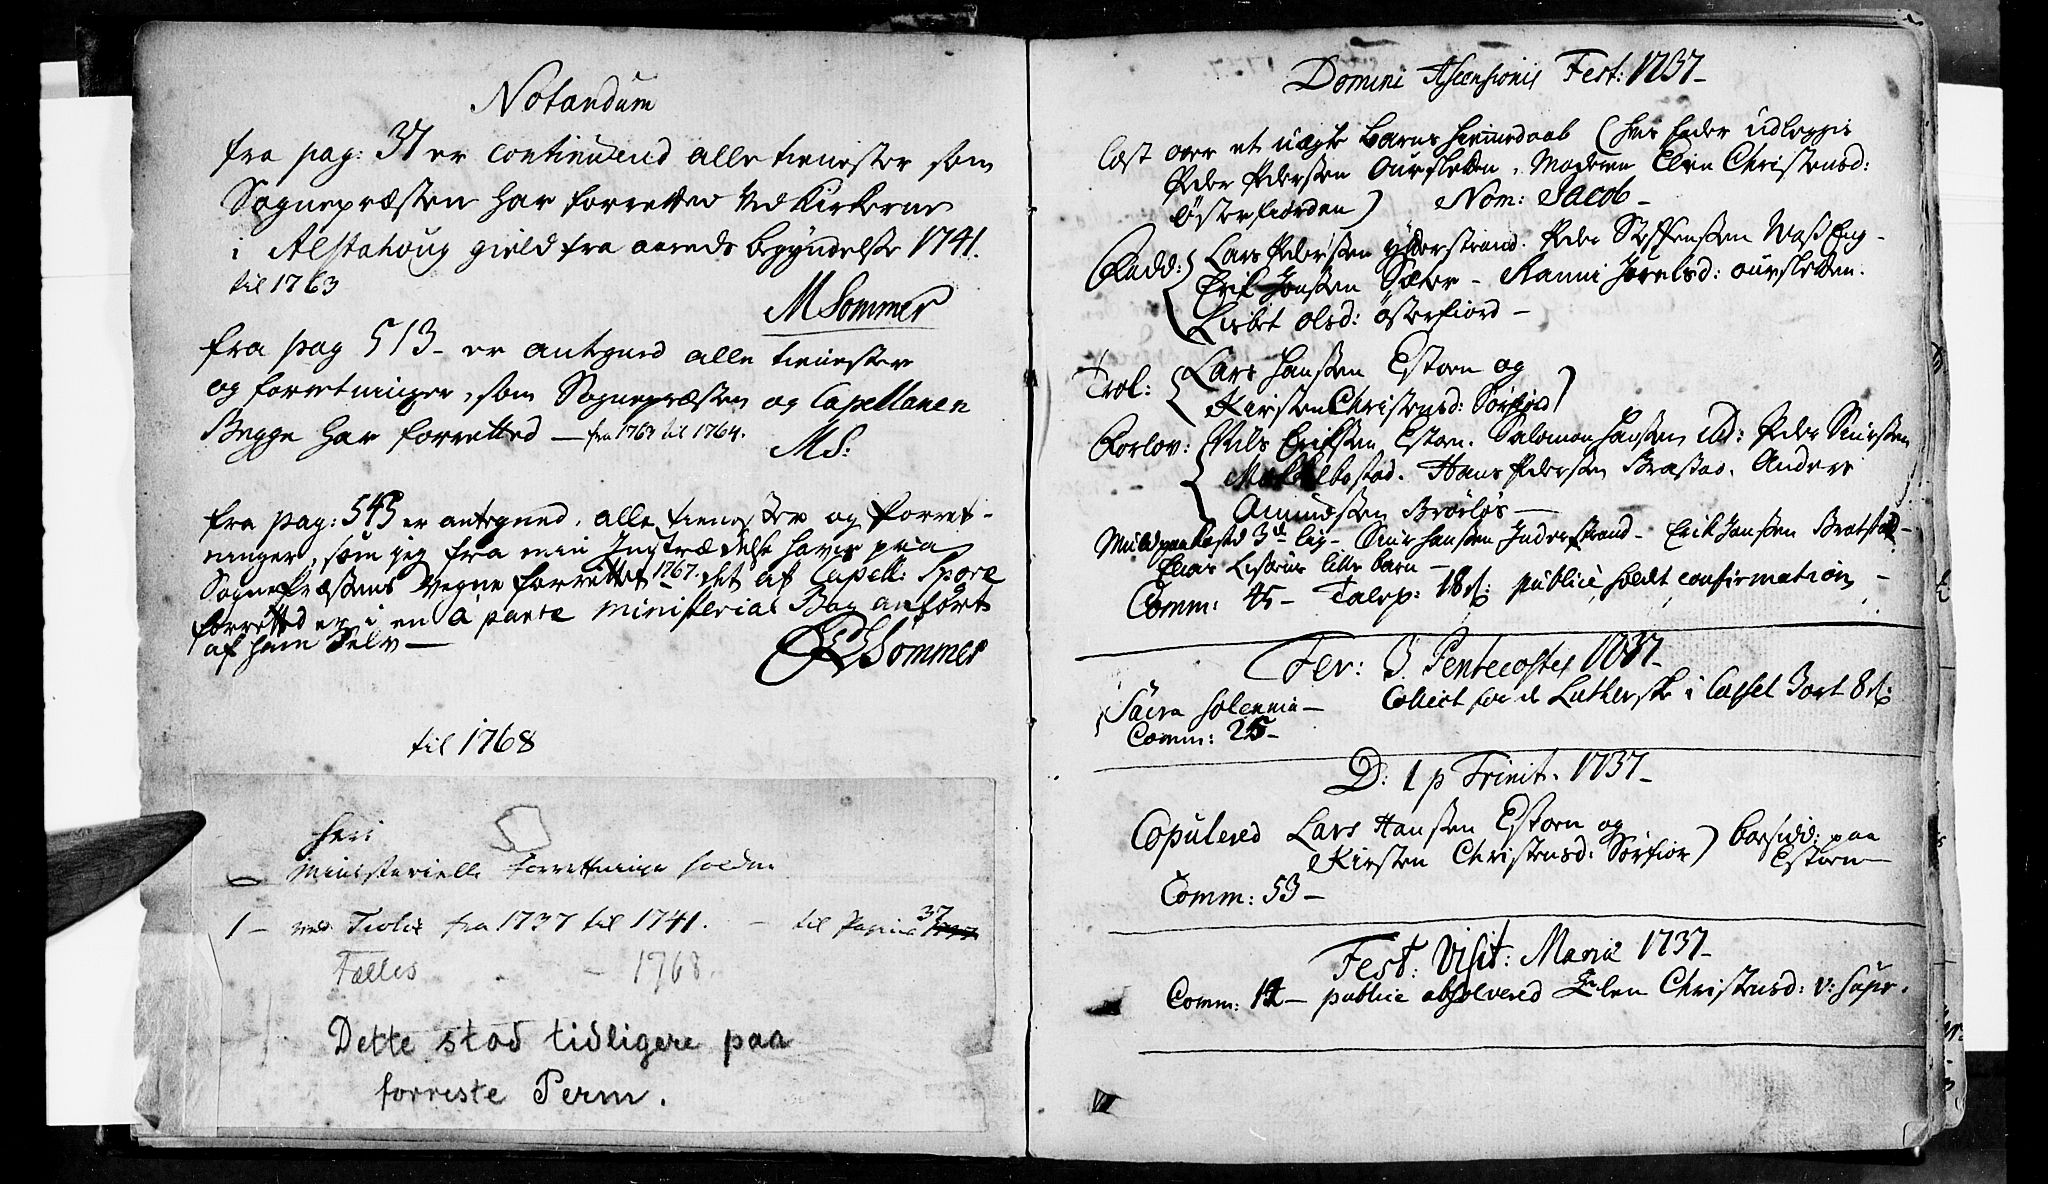 Notandum
fra pag: 37 er continuered alle tienester som
Sognepræsten har forretted ved Kirkerne
i Alstahoug gield fra aareds begyndelse 1741.
til 1763
MSommer
fra pag 513 - er antegned alle tienester
og forretninger, som Sognepræsten og Capellanen
Begge har forretted — fra 1763 til 1764.
MS:
fra pag: 545 er antegned, alle tienester og forret-
ninger, som jeg fra min Indtrædelse haver paa
SognePræstens Vegne forrettet 1767. det af Capell: Spore
forretted er i en à parte ministerial Bog anført
af ham Selv —
Sommer
til 1768
Heri
Ministerielle forretninger holdne
1 - ved Tiotte fra 1737 til 1741. - til Pagina 37
Fælles - 1768.
Dette stod tidligere paa
forreste Perm.
Domini Ascensionis Fest: 1737-
Læst over et uægte barns hiemedaab (hvis fader udlegges
Peder Pedersen Oursletten, Moderen Elen Christensd:
Österfiorden) Nom: Jacob -
Fadd: Lars Pedersen ytterstrand. Peder Steffensen
Erik Jonsen Sæter - Ranni oursletten.
Lisbet olsd: österfiord -
Trol: Lars Hansen Estoen og
Kirsten Christensd: Sørfiord
Forlov: Nils Eriksen Estoen. Salomon Hansen ibd: Peder
Hans Pedersen Brastad. Anders
Brørløs -
3de lig - Hansen Inderstrand - Erik Jansen
lille barn -
Comm: 45 - Talep: 18 s: publicè holdt confirmation -
Fer: 3 Pentecostes 1737-
Sacra solennia - Collect for de Lutherske i Cassel 3 ort 8 s:
Comm: 25 -
D: 1 p Trinit. 1737-
Copulered Lars Hansen Estoen og
Kirsten Christensd: Sørfior) paa
Estoen
Comm: 53 -
Fest: Visit: Mariæ 1737-
Comm: 12 - publice absolvered Elen Christensd: v: supr.